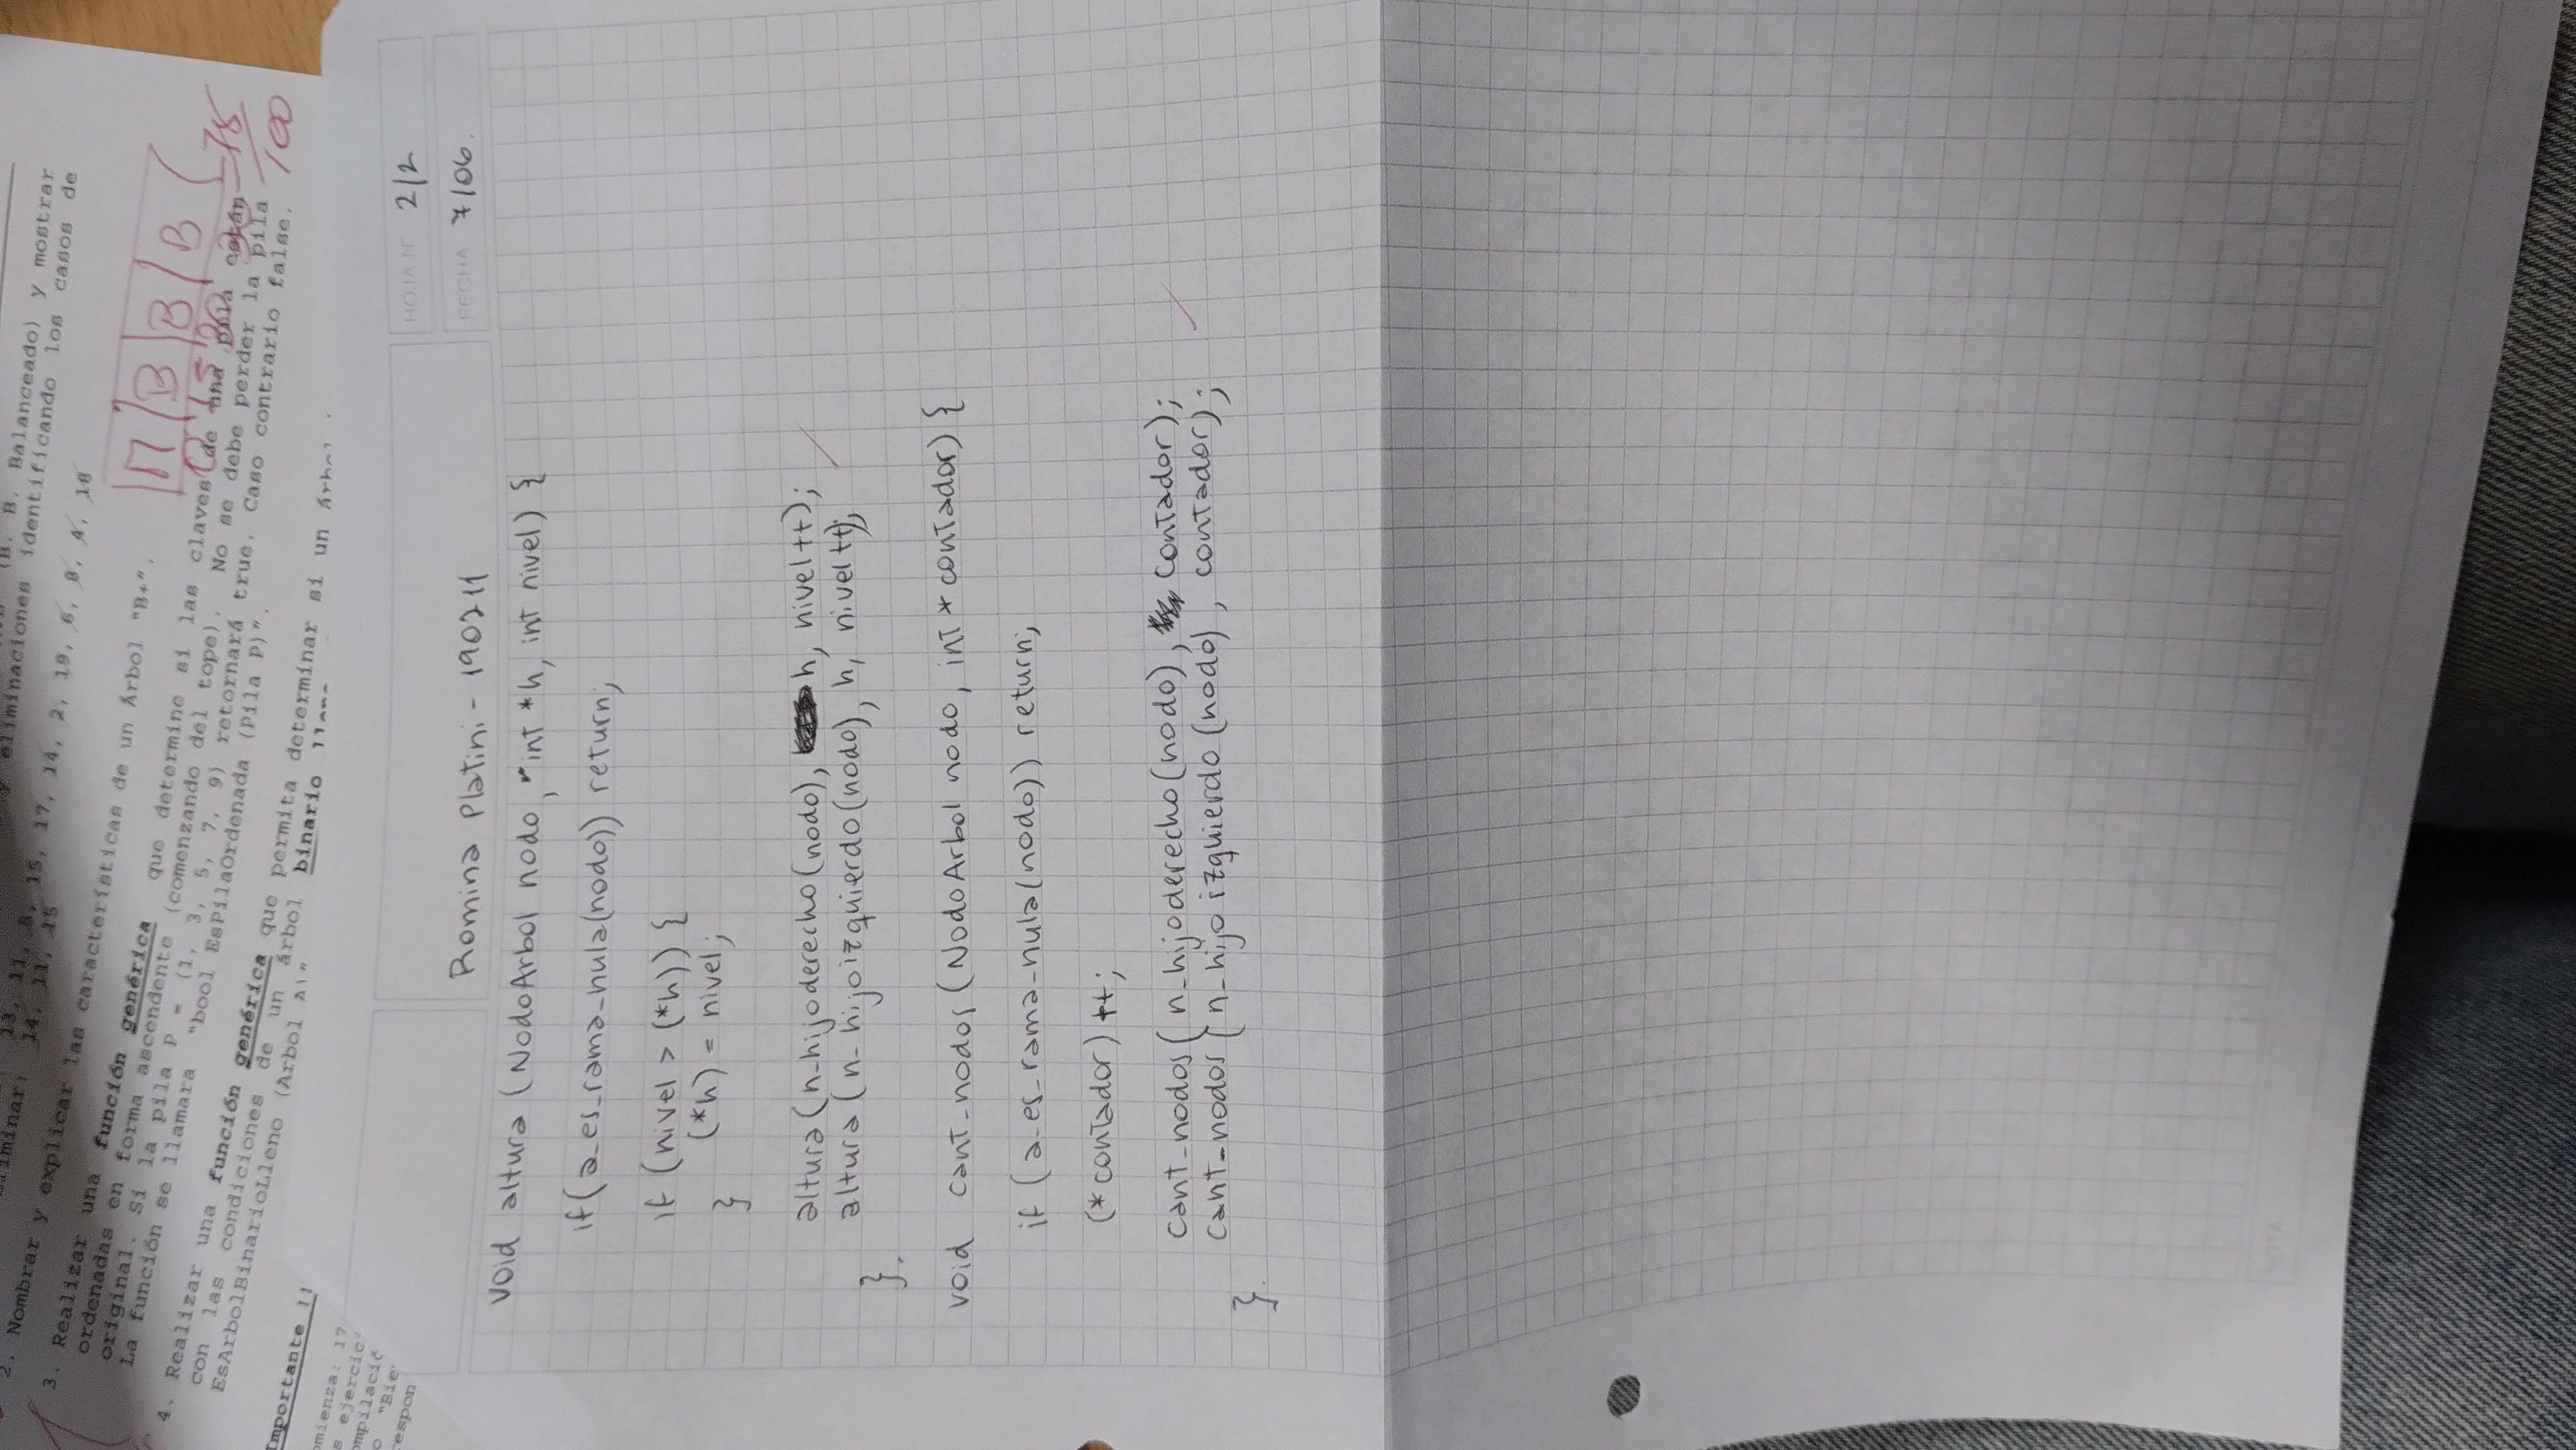 (B. B. Balanceado) y mostrar
y eliminaciones identificando los casos de
13, 11, 8, 15, 17, 14, 2, 19, 6, 8, 4, 18
14, 11, 15
2. Nombrar y explicar las características de un Árbol "B+".
3. Realizar una función genérica que determine si las claves de una pila están
ordenadas en forma ascendente (comenzando del tope). No se debe perder la pila
original. Si la pila P = (1, 3, 5, 7, 9) retornará true. Caso contrario false.
La función se llamara "bool EsPilaOrdenada (Pila P)".
4. Realizar una función genérica que permita determinar si un
con las condiciones de un árbol binario
EsArbolBinarioLleno (Arbol A)"
Importante !!
B B B
75
100
HOJA Nº 2/2
Romina Platini - 190211
FECHA 7/06.
void altura (NodoArbol nodo, int *h, int nivel) {
if(a_es_rama_nula(nodo)) return;
if (nivel > (*h)) {
(*h) = nivel;
}
altura(n_hijoderecho(nodo), h, nivel++);
altura(n_hijoizquierdo(nodo), h, nivel++);
}.
void cant_nodos (NodoArbol nodo, int *contador) {
if (a_es_rama_nula(nodo)) return;
(*contador)++;
cant_nodos(n_hijoderecho(nodo), contador);
cant_nodos(n_hijoizquierdo(nodo), contador);
}.
NOTA